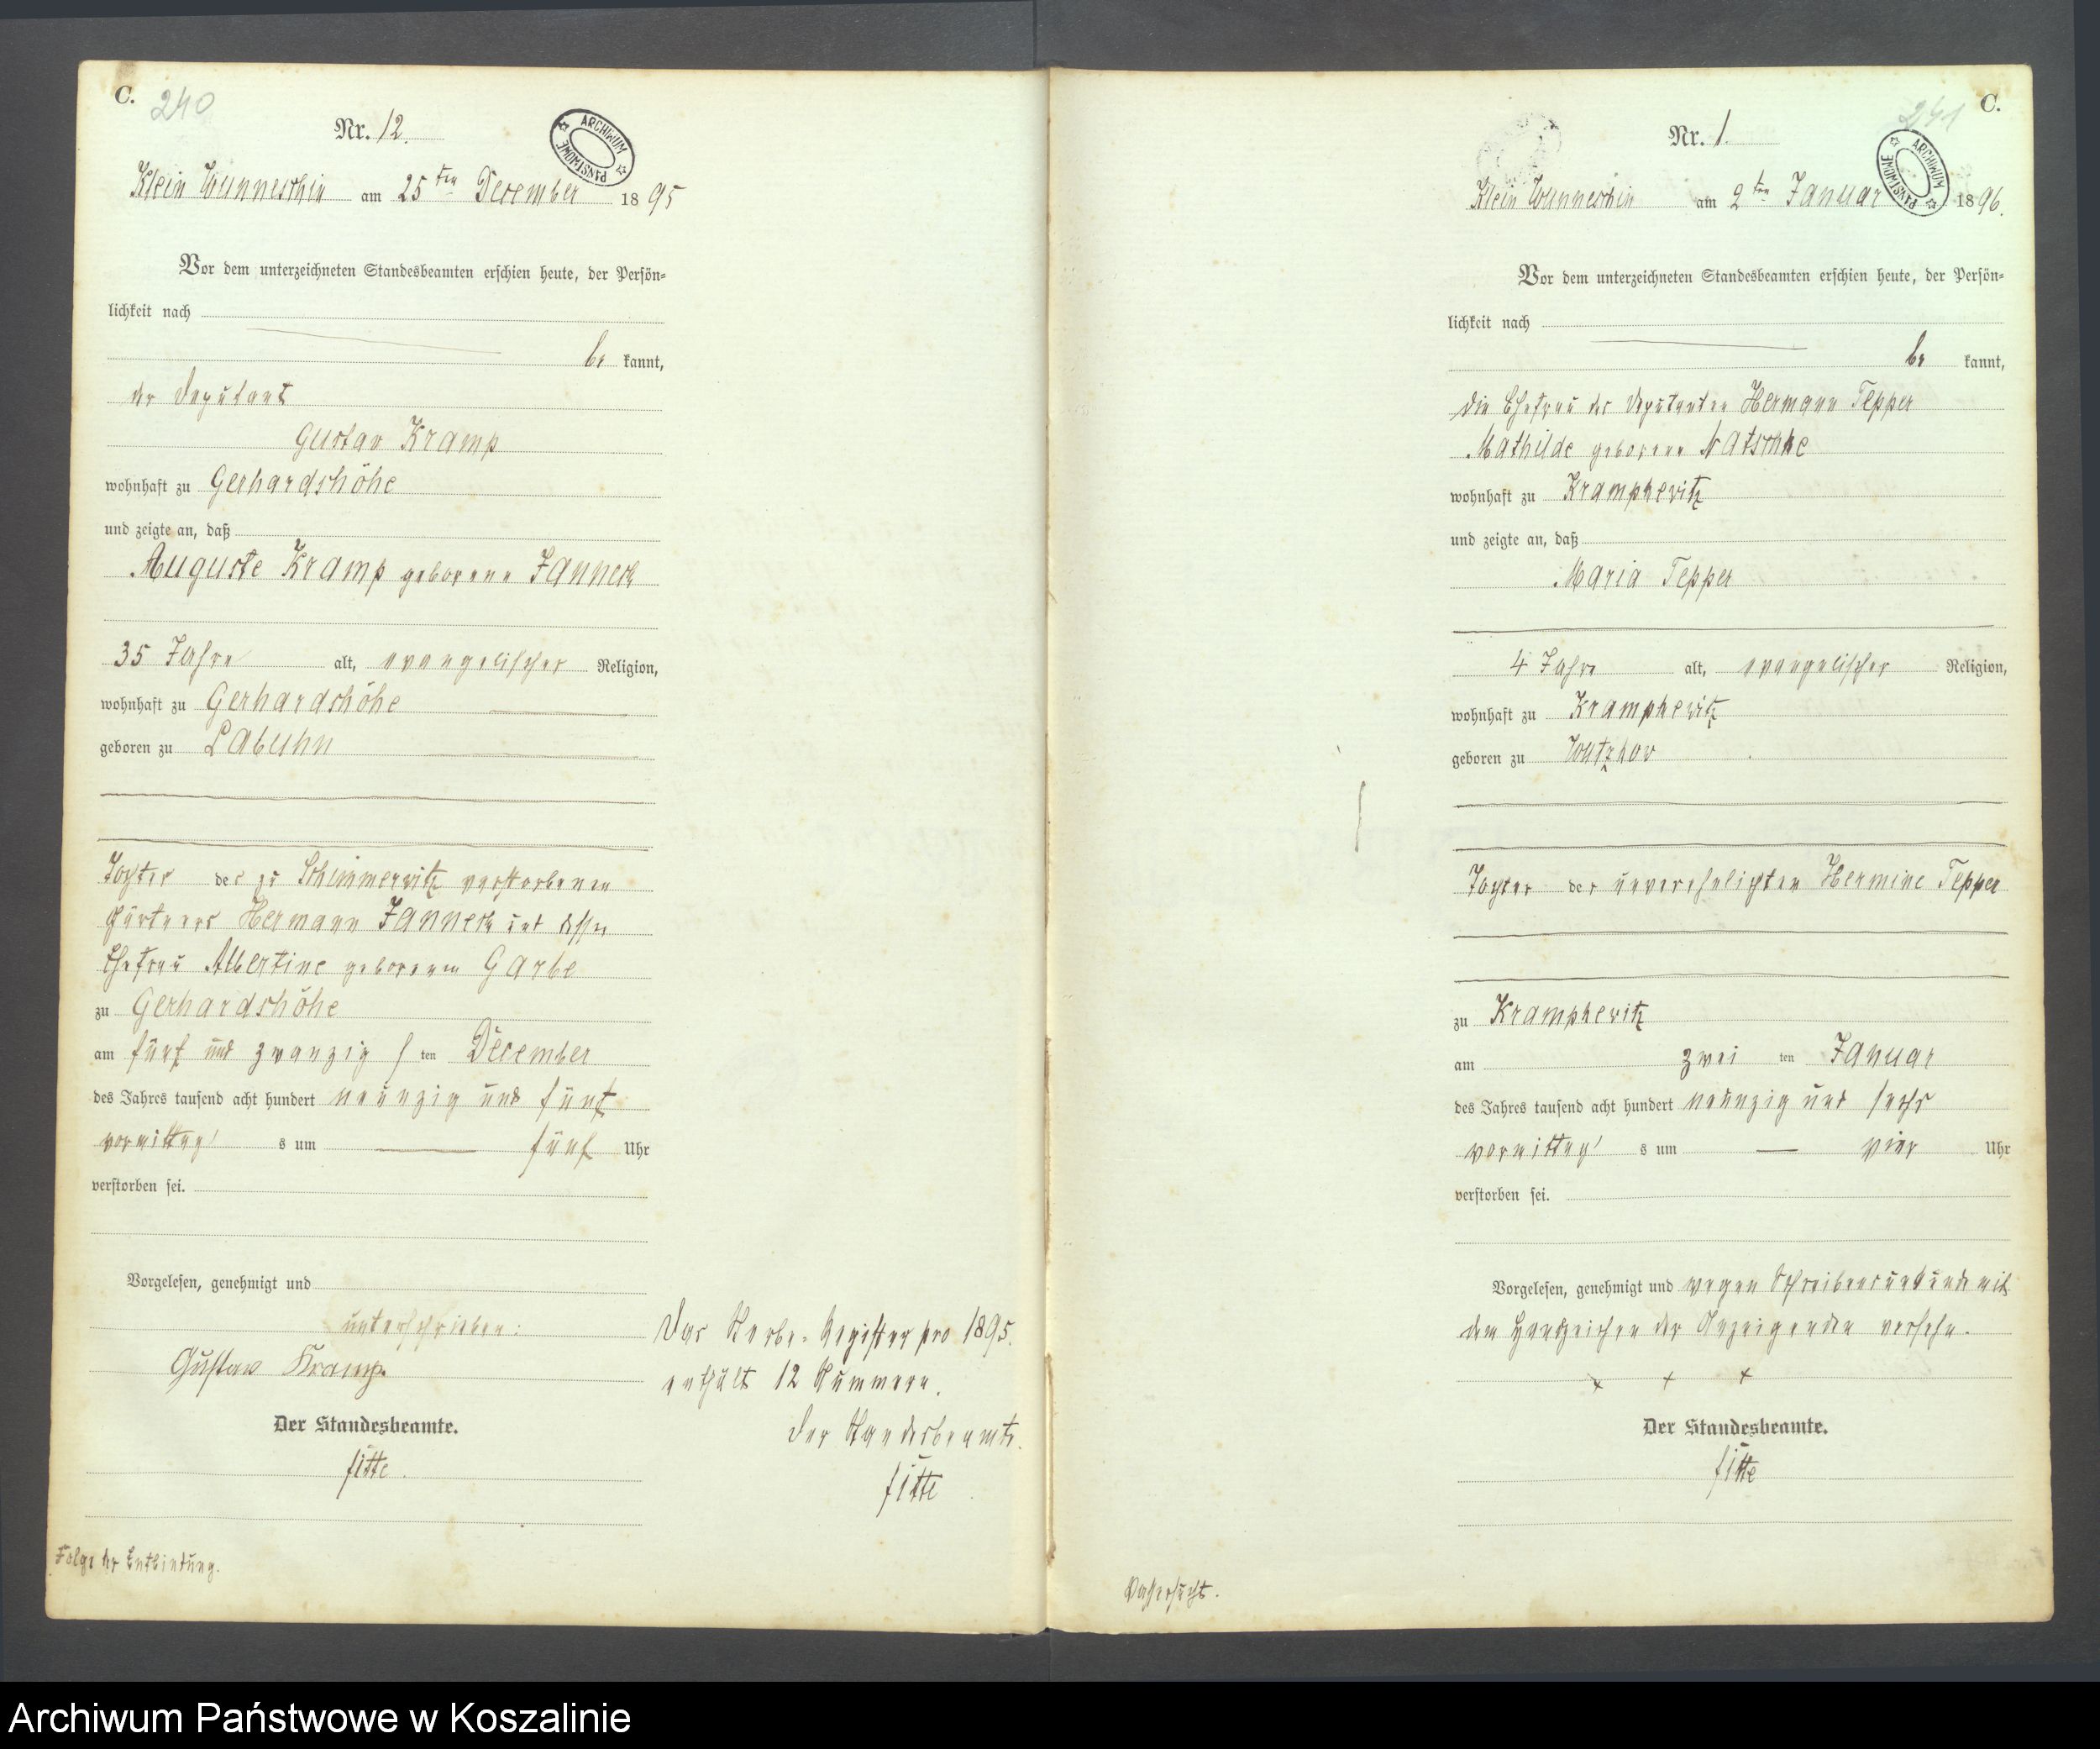 C.
240
Nr. 12.
ARCHIWUM PAŃSTWOWE
Klein Wunneschin am 25ten December 1895
Vor dem unterzeichneten Standesbeamten erschien heute, der Persön-
lichkeit nach
be kannt,
der Deputant
Gustav Kramp
wohnhaft zu Gerhardshöhe
und zeigte an, daß
Auguste Kramp geborene Janneck
35 Jahre alt, evangelischer Religion,
wohnhaft zu Gerhardshöhe
geboren zu Labuhn
Tochter des zu Schimmerwitz verstorbenen
Gärtners Hermann Janneck und dessen
Ehefrau Albertine geborenen Garbe
zu Gerhardshöhe
am fünf und zwanzigs ten December
des Jahres tausend acht hundert neunzig und fünf
vormittag s um fünf Uhr
verstorben sei.
Vorgelesen, genehmigt und
unterschrieben:
Gustav Kramp
Der Standesbeamte.
Fitte
Folge der Entbindung.
Das Sterbe-Register pro 1895.
enthält 12 Nummern.
Der Standesbeamte.
Fitte
C.
241
Nr. 1.
ARCHIWUM PAŃSTWOWE
Klein Wunneschin am 2ten Januar 1896.
Vor dem unterzeichneten Standesbeamten erschien heute, der Persön-
lichkeit nach
be kannt,
die Ehefrau des Deputanten Hermann Tepper
Mathilde geborene Natschke
wohnhaft zu Krampkewitz
und zeigte an, daß
Maria Tepper
4 Jahre alt, evangelischer Religion,
wohnhaft zu Krampkewitz
geboren zu Wutzkow
Tochter der unverehelichten Hermine Tepper
zu Krampkewitz
am zwei ten Januar
des Jahres tausend acht hundert neunzig und sechs
vormittag s um vier Uhr
verstorben sei.
Vorgelesen, genehmigt und wegen Schreibensunkunde mit
dem Handzeichen der Anzeigenden versehn.
+ + +
Der Standesbeamte.
Fitte
Wassersucht.
Archiwum Państwowe w Koszalinie